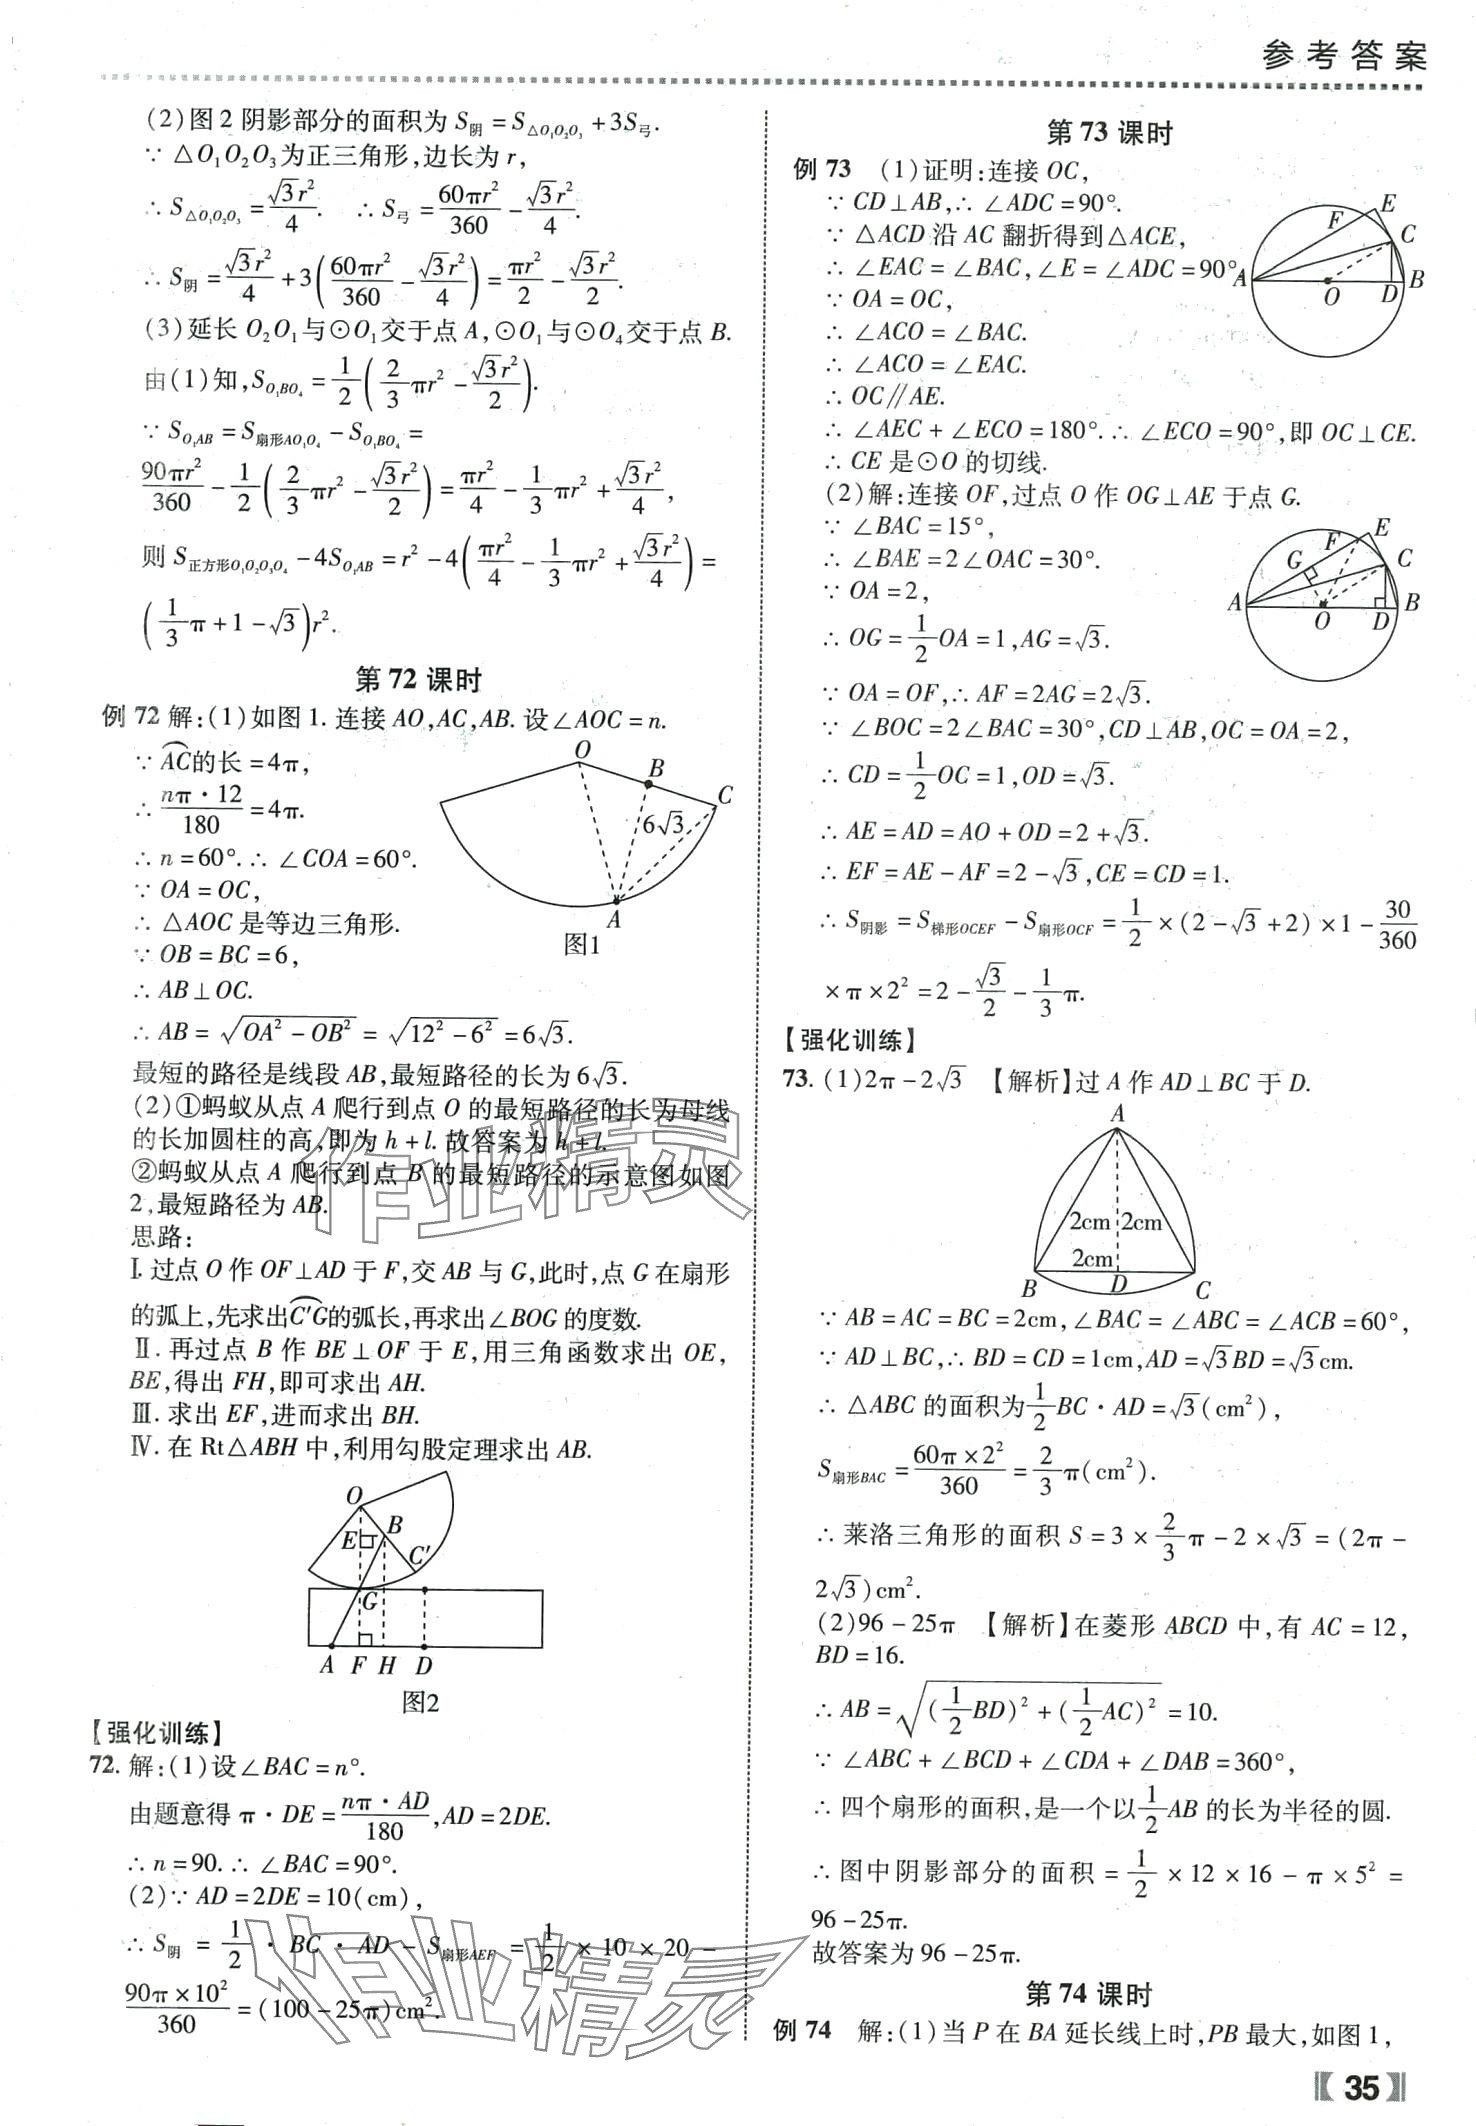 参考答案
(2)图2阴影部分的面积为 S阴 = S△O₁O₂O₃ + 3S弓.
∵ △O₁O₂O₃为正三角形,边长为 r,
∴ S△O₁O₂O₃ = √3r²/4. ∴ S弓 = 60πr²/360 - √3r²/4.
∴ S阴 = √3r²/4 + 3(60πr²/360 - √3r²/4) = πr²/2 - √3r²/2.
(3)延长 O₂O₁与⊙O₁交于点 A,⊙O₁与⊙O₄交于点 B.
由(1)知,S O₁BO₄ = 1/2(2/3πr² - √3r²/2).
∵ S O₁AB = S扇形AO₁O₄ - S O₁BO₄ =
90πr²/360 - 1/2(2/3πr² - √3r²/2) = πr²/4 - 1/3πr² + √3r²/4,
则 S正方形O₁O₂O₃O₄ - 4S O₁AB = r² - 4(πr²/4 - 1/3πr² + √3r²/4) =
(1/3π + 1 - √3)r².
第 72 课时
例 72 解:(1)如图 1. 连接 AO,AC,AB. 设∠AOC = n.
∵ AC⌒的长 = 4π,
∴ nπ·12/180 = 4π.
∴ n = 60°. ∴ ∠COA = 60°.
∵ OA = OC,
∴ △AOC 是等边三角形.
∵ OB = BC = 6,
∴ AB⊥OC.
∴ AB = √(OA² - OB²) = √(12² - 6²) = 6√3.
O
B
C
6√3
A
图1
最短的路径是线段 AB,最短路径的长为 6√3.
(2)①蚂蚁从点 A 爬行到点 O 的最短路径的长为母线
的长加圆柱的高,即为 h + l. 故答案为 h + l.
②蚂蚁从点 A 爬行到点 B 的最短路径的示意图如图
2,最短路径为 AB.
思路:
Ⅰ. 过点 O 作 OF⊥AD 于 F,交 AB 与 G,此时,点 G 在扇形
的弧上,先求出C'G⌒的弧长,再求出∠BOG 的度数.
Ⅱ. 再过点 B 作 BE⊥OF 于 E,用三角函数求出 OE,
BE,得出 FH,即可求出 AH.
Ⅲ. 求出 EF,进而求出 BH.
Ⅳ. 在 Rt△ABH 中,利用勾股定理求出 AB.
O
E
B
C'
G
A F H D
图2
【强化训练】
72. 解:(1)设∠BAC = n°.
由题意得 π·DE = nπ·AD/180,AD = 2DE.
∴ n = 90. ∴ ∠BAC = 90°.
(2)∵ AD = 2DE = 10(cm),
∴ S阴 = 1/2·BC·AD - S扇形AEF = 1/2 × 10 × 20 -
90π × 10²/360 = (100 - 25π)cm².
第 73 课时
例 73 (1)证明:连接 OC,
∵ CD⊥AB,∴ ∠ADC = 90°.
∵ △ACD 沿 AC 翻折得到△ACE,
∴ ∠EAC = ∠BAC,∠E = ∠ADC = 90°.
∵ OA = OC,
∴ ∠ACO = ∠BAC.
∴ ∠ACO = ∠EAC.
∴ OC∥AE.
∴ ∠AEC + ∠ECO = 180°. ∴ ∠ECO = 90°,即 OC⊥CE.
∴ CE 是⊙O 的切线.
F E C A O D B
(2)解:连接 OF,过点 O 作 OG⊥AE 于点 G.
∵ ∠BAC = 15°,
∴ ∠BAE = 2∠OAC = 30°.
∵ OA = 2,
∴ OG = 1/2 OA = 1,AG = √3.
F E G C A O D B
∵ OA = OF,∴ AF = 2AG = 2√3.
∵ ∠BOC = 2∠BAC = 30°,CD⊥AB,OC = OA = 2,
∴ CD = 1/2 OC = 1,OD = √3.
∴ AE = AD = AO + OD = 2 + √3.
∴ EF = AE - AF = 2 - √3,CE = CD = 1.
∴ S阴影 = S梯形OCEF - S扇形OCF = 1/2 × (2 - √3 + 2) × 1 - 30/360
× π × 2² = 2 - √3/2 - 1/3π.
【强化训练】
73. (1)2π - 2√3 【解析】过 A 作 AD⊥BC 于 D.
A
2cm 2cm
2cm
B D C
∵ AB = AC = BC = 2cm,∠BAC = ∠ABC = ∠ACB = 60°,
∵ AD⊥BC,∴ BD = CD = 1cm,AD = √3BD = √3cm.
∴ △ABC 的面积为1/2 BC·AD = √3(cm²),
S扇形BAC = 60π × 2²/360 = 2/3π(cm²).
∴ 莱洛三角形的面积 S = 3 × 2/3π - 2 × √3 = (2π -
2√3)cm².
(2)96 - 25π 【解析】在菱形 ABCD 中,有 AC = 12,
BD = 16.
∴ AB = √((1/2 BD)² + (1/2 AC)²) = 10.
∵ ∠ABC + ∠BCD + ∠CDA + ∠DAB = 360°,
∴ 四个扇形的面积,是一个以1/2 AB 的长为半径的圆.
∴ 图中阴影部分的面积 = 1/2 × 12 × 16 - π × 5² =
96 - 25π.
故答案为 96 - 25π.
第 74 课时
例 74 解:(1)当 P 在 BA 延长线上时,PB 最大,如图 1,
【35】
作业精灵
作业精灵